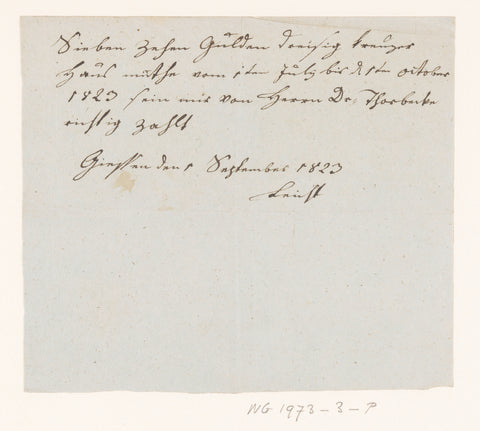 Sieben Zehen Gulden dreisig kreuzer
Haus mithe vom 1ten July bis d 1ten October
1823 sein mir von Herrn Dr. Thorbecke
richtig zahlt
Giessen den 1 September 1823
Leicht
NG 1973-3-P